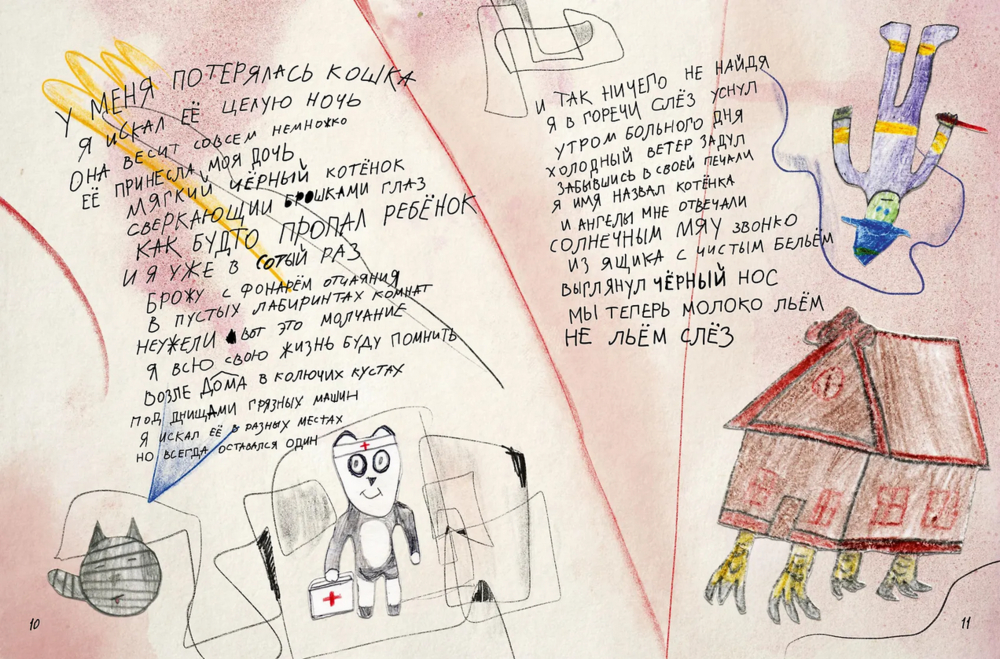 У МЕНЯ ПОТЕРЯЛАСЬ КОШКА
Я ИСКАЛ ЕЁ ЦЕЛУЮ НОЧЬ
ОНА ВЕСИТ СОВСЕМ НЕМНОЖКО
ЕЁ ПРИНЕСЛА МОЯ ДОЧЬ
МЯГКИЙ ЧЁРНЫЙ КОТЁНОК
СВЕРКАЮЩИЙ БРОШКАМИ ГЛАЗ
КАК БУДТО ПРОПАЛ РЕБЁНОК
И Я УЖЕ В СОТЫЙ РАЗ
БРОЖУ С ФОНАРЁМ ОТЧАЯНИЯ
В ПУСТЫХ ЛАБИРИНТАХ КОМНАТ
НЕУЖЕЛИ ВОТ ЭТО МОЛЧАНИЕ
Я ВСЮ СВОЮ ЖИЗНЬ БУДУ ПОМНИТЬ
ВОЗЛЕ ДОМА В КОЛЮЧИХ КУСТАХ
ПОД ДНИЩАМИ ГРЯЗНЫХ МАШИН
Я ИСКАЛ ЕЁ В РАЗНЫХ МЕСТАХ
НО ВСЕГДА ОСТАВАЛСЯ ОДИН
10
И ТАК НИЧЕГО НЕ НАЙДЯ
Я В ГОРЕЧИ СЛЁЗ УСНУЛ
УТРОМ БОЛЬНОГО ДНЯ
ХОЛОДНЫЙ ВЕТЕР ЗАДУЛ
ЗАБЫВШИСЬ В СВОЕЙ ПЕЧАЛИ
Я ИМЯ НАЗВАЛ КОТЁНКА
И АНГЕЛЫ МНЕ ОТВЕЧАЛИ
СОЛНЕЧНЫМ МЯУ ЗВОНКО
ИЗ ЯЩИКА С ЧИСТЫМ БЕЛЬЁМ
ВЫГЛЯНУЛ ЧЁРНЫЙ НОС
МЫ ТЕПЕРЬ МОЛОКО ЛЬЁМ
НЕ ЛЬЁМ СЛЁЗ
11